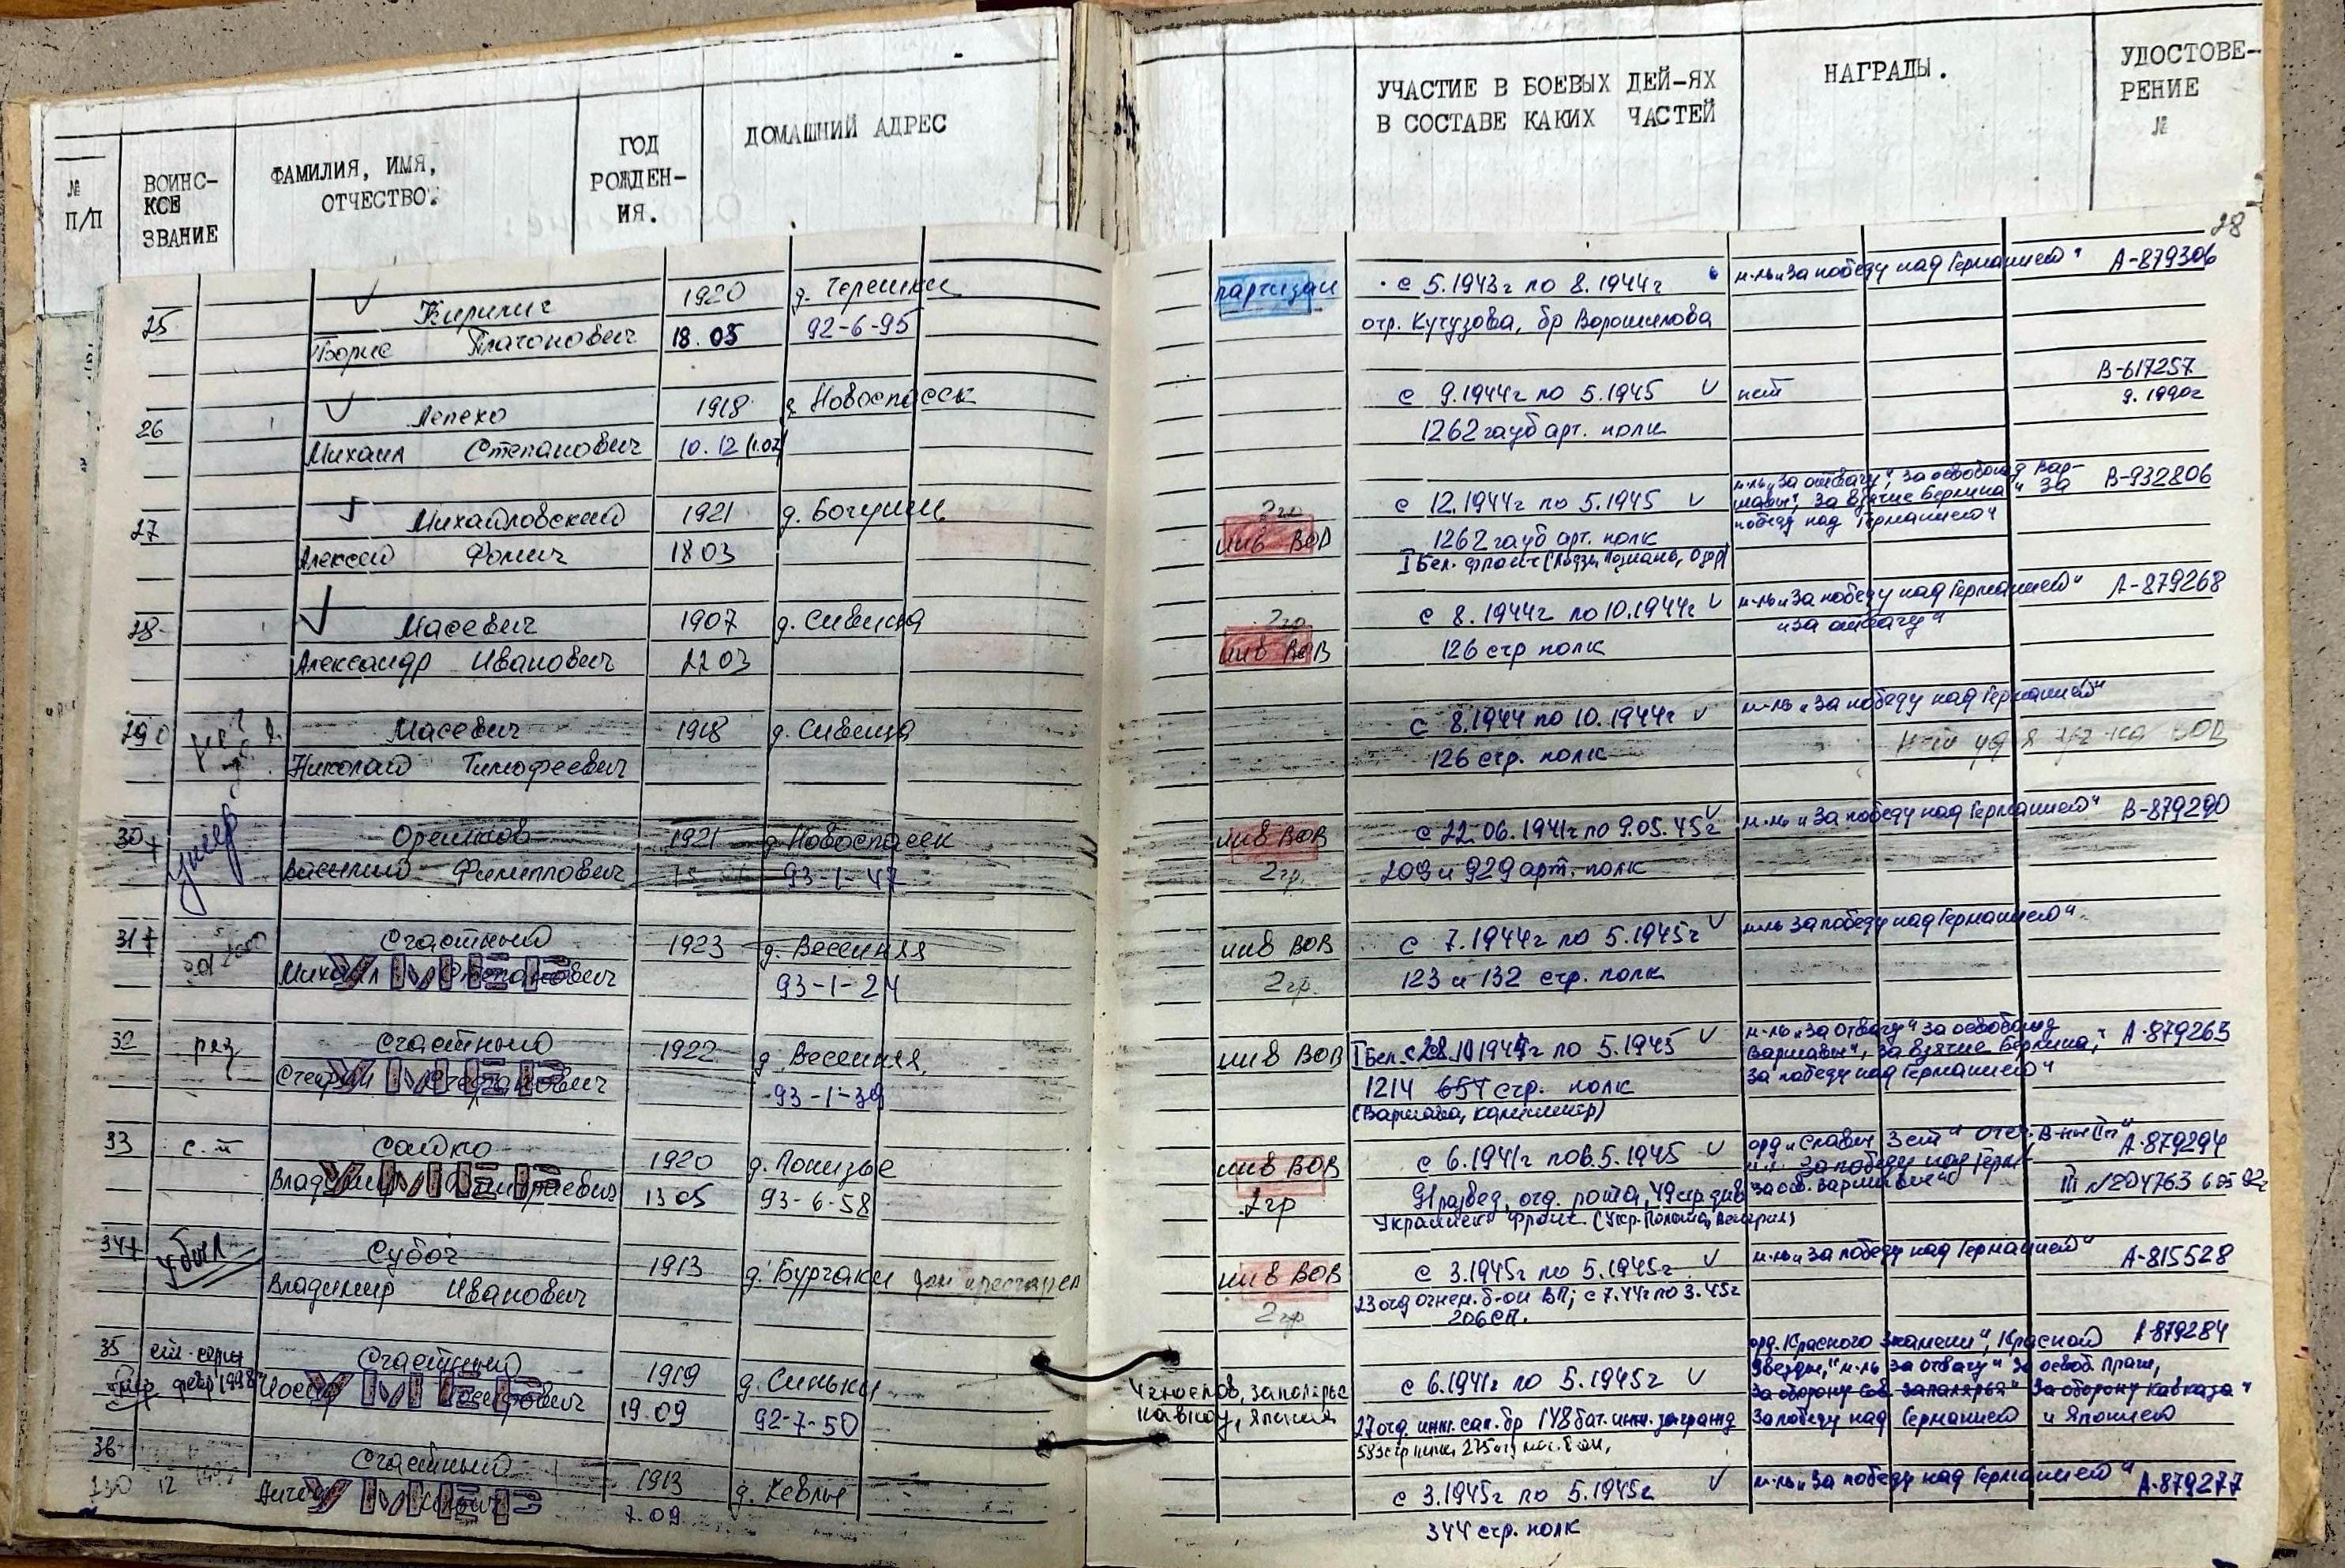 № П/П
ВОИНС-
КОЕ
ЗВАНИЕ
ФАМИЛИЯ, ИМЯ,
ОТЧЕСТВО.
ГОД
РОЖДЕН-
ИЯ.
ДОМАШНИЙ АДРЕС
УЧАСТИЕ В БОЕВЫХ ДЕЙ-ЯХ
В СОСТАВЕ КАКИХ ЧАСТЕЙ
НАГРАДЫ.
УДОСТОВЕ-
РЕНИЕ
№
28
25 Кирилич 1920 д. Терешки партизан с 5.1943г по 8.1944г м-ль "За победу над Германией" А-879306
Борис Платонович 18.05 92-6-95 отр. Кутузова, бр Ворошилова
26 Лепехо 1918 д Новоспасск с 9.1944г по 5.1945 нет В-617257
Михаил Степанович 10.12 1262 гауб арт. полк 9. 1990г
27 Михайловский 1921 д. Богуши 2гр с 12.1944г по 5.1945 м-ль "За отвагу", За освобожд Вар-
шавы", За взятие Берлина" За В-932806
Алексей Фомич 18 03 инв ВОВ 1262 гауб арт. полк победу над Германией"
I Бел. фронт (Лодзь, Познань, Одер)
28 Масевич 1907 д. Сивица 2гр с 8.1944г по 10.1944г м-ль "За победу над Германией" А-879268
Александр Иванович 22 03 инв ВОВ 126 стр полк "за отвагу"
29 Масевич 1918 д. Сивица с 8.1944 по 10.1944г м-ль "За победу над Германией"
Николай Тимофеевич 126 стр. полк Нет уд я уч-ка ВОВ
30+ умер Орешков 1921 д Новоспасск инв ВОВ с 22.06.1941г по 9.05.45г м-ль "За победу над Германией" В-879290
Василий Филиппович 93-1-47 2гр. 209 и 929 арт. полк
31+ Счастный 1923 д. Весенняя инв ВОВ с 7.1944г по 5.1945г м-ль За победу над Германией"
Михаил Степанович УМЕР 93-1-24 2гр. 123 и 132 стр. полк
32 ряд Счастный 1922 д Весенняя, инв ВОВ I Бел. с 28.10 1944г по 5.1945 м-ль "За отвагу" За освобожд
Варшавы", За взятие Берлина," А-879263
Стефан Стефанович УМЕР 93-1-39 1214 657 стр. полк За победу над Германией"
(Варшава,
33 с. Сацко 1920 д. Понизье инв ВОВ с 6.1941г по 5.1945 орд "Славы 3 ст" Отеч. В-ны II" А-879294
Владимир УМЕР 13 05 93-6-58 2гр 91 развед. отд. рота, 49 стр див За победу над Герм За осв. Варшавы III №204763
Украинск фронт (Укр. Польша, Венгрия)
34+ убыл Субоч 1913 д. Бурчаки дом престарел инв ВОВ с 3.1945г по 5.1945г м-ль "За победу над Германией" А-815528
Владимир Иванович 2гр 23 отд огнем. б-он ВП; с 7.44г по 3.45г
206 СП.
35 ст. серж Счастный 1919 д. Синьки с 6.1941г по 5.1945г орд. Красного знамени", Красной А-879284
Звезды," м-ль За отвагу" За освоб Праги,
умер февр 1998г Иосиф Иосифович УМЕР 19.09 92-7-50 заполярье За оборону Сов. Заполярья" За оборону Кавказа"
Кавказ, Япония 27 отд. инж. сап. бр 148 бат. инж. загражд За победу над Германией и Японией
36 Счастный 1913 д. Кевлы с 3.1945г по 5.1945г м-ль "За победу над Германией" А-879277
130 12 УМЕР 7.09
344 стр. полк